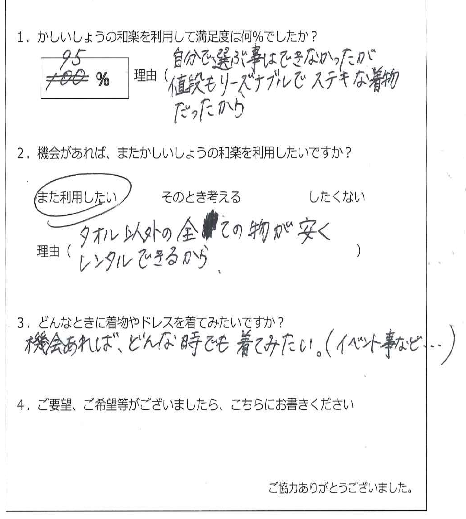 1．かしいしょうの和楽を利用して満足度は何%でしたか？
95
100 %
理由（自分で選ぶ事はできなかったが
値段もリーズナブルでステキな着物
だったから
2．機会があれば、またかしいしょうの和楽を利用したいですか？
また利用したい　そのとき考える　したくない
理由（タオル以外の全ての物が安く
レンタルできるから。）
3．どんなときに着物やドレスを着てみたいですか？
機会あれば、どんな時でも着てみたい。（イベント事など…）
4．ご要望、ご希望等がございましたら、こちらにお書きください
ご協力ありがとうございました。